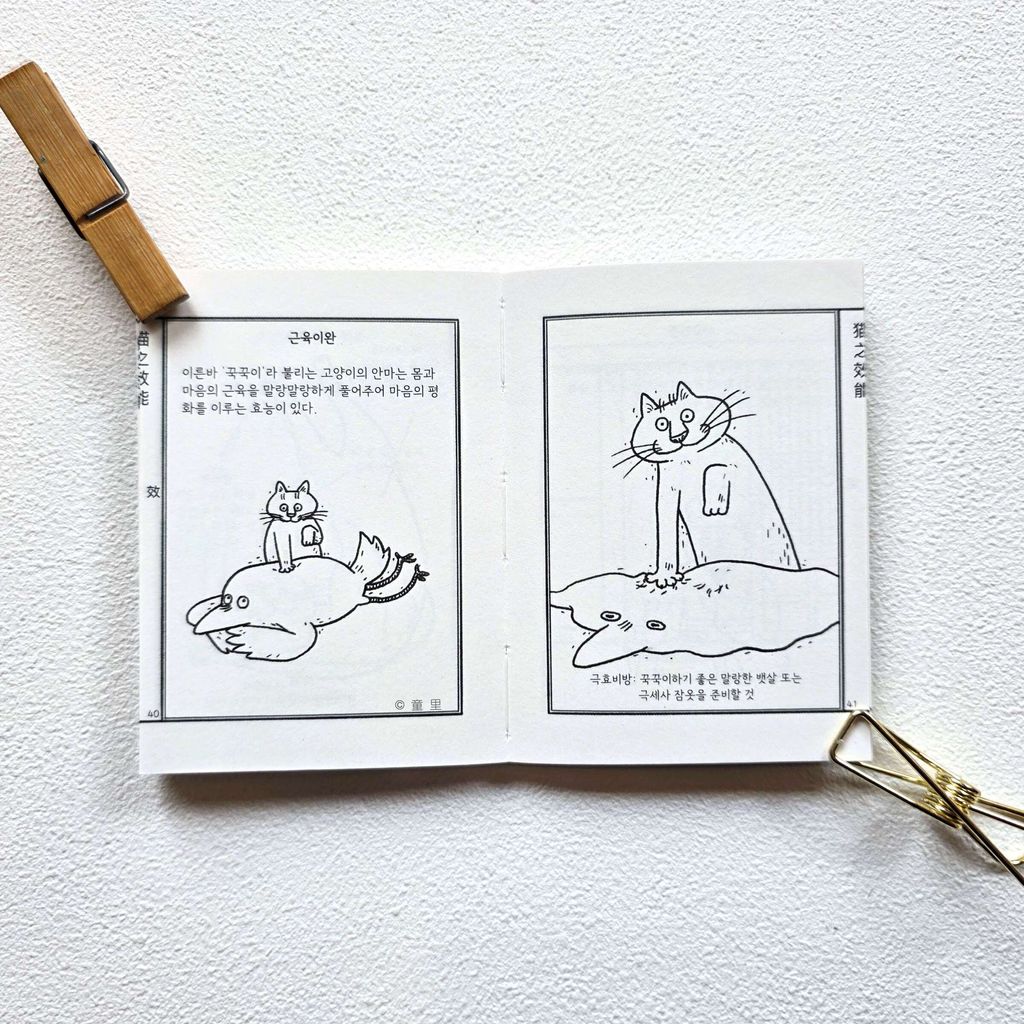 근육이완
이른바 '꾹꾹이'라 불리는 고양이의 안마는 몸과
마음의 근육을 말랑말랑하게 풀어주어 마음의 평
화를 이루는 효능이 있다.
猫之效能
效
40
© 童里
猫之效能
극효비방: 꾹꾹이하기 좋은 말랑한 뱃살 또는
극세사 잠옷을 준비할 것
41